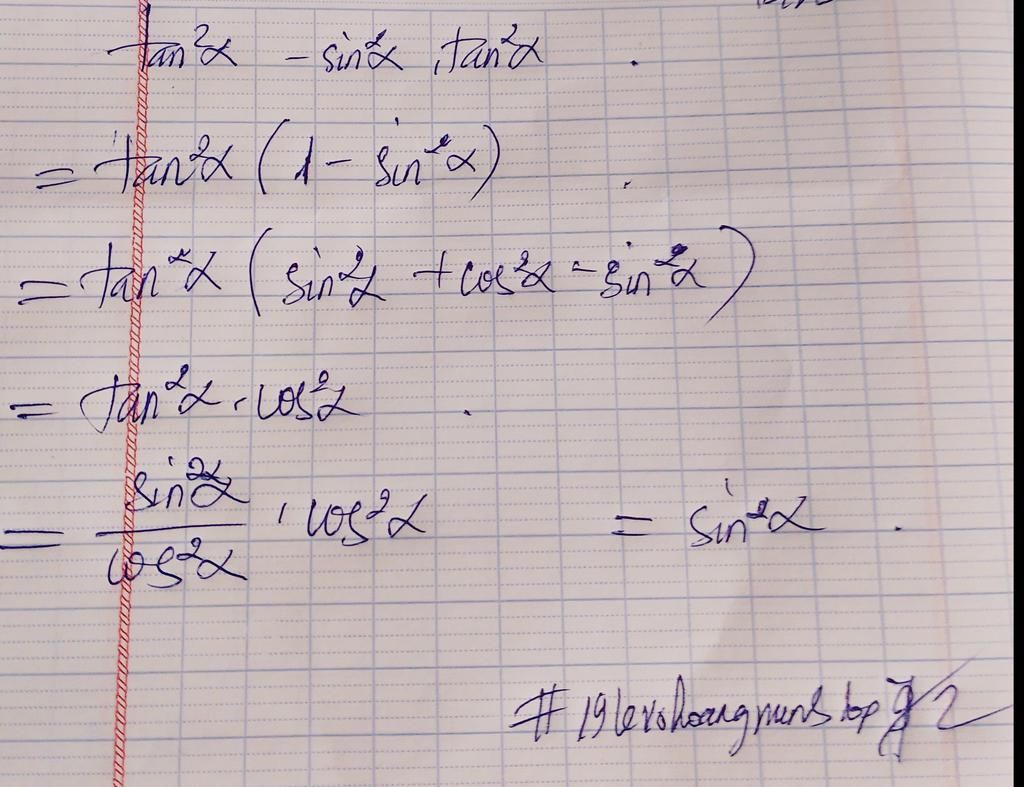 tan²α - sin²α . tan²α
= tan²α (1 - sin²α)
= tan²α (sin²α + cos²α - sin²α)
= tan²α . cos²α
= sin²α / cos²α . cos²α = sin²α .
# 19 lop 2